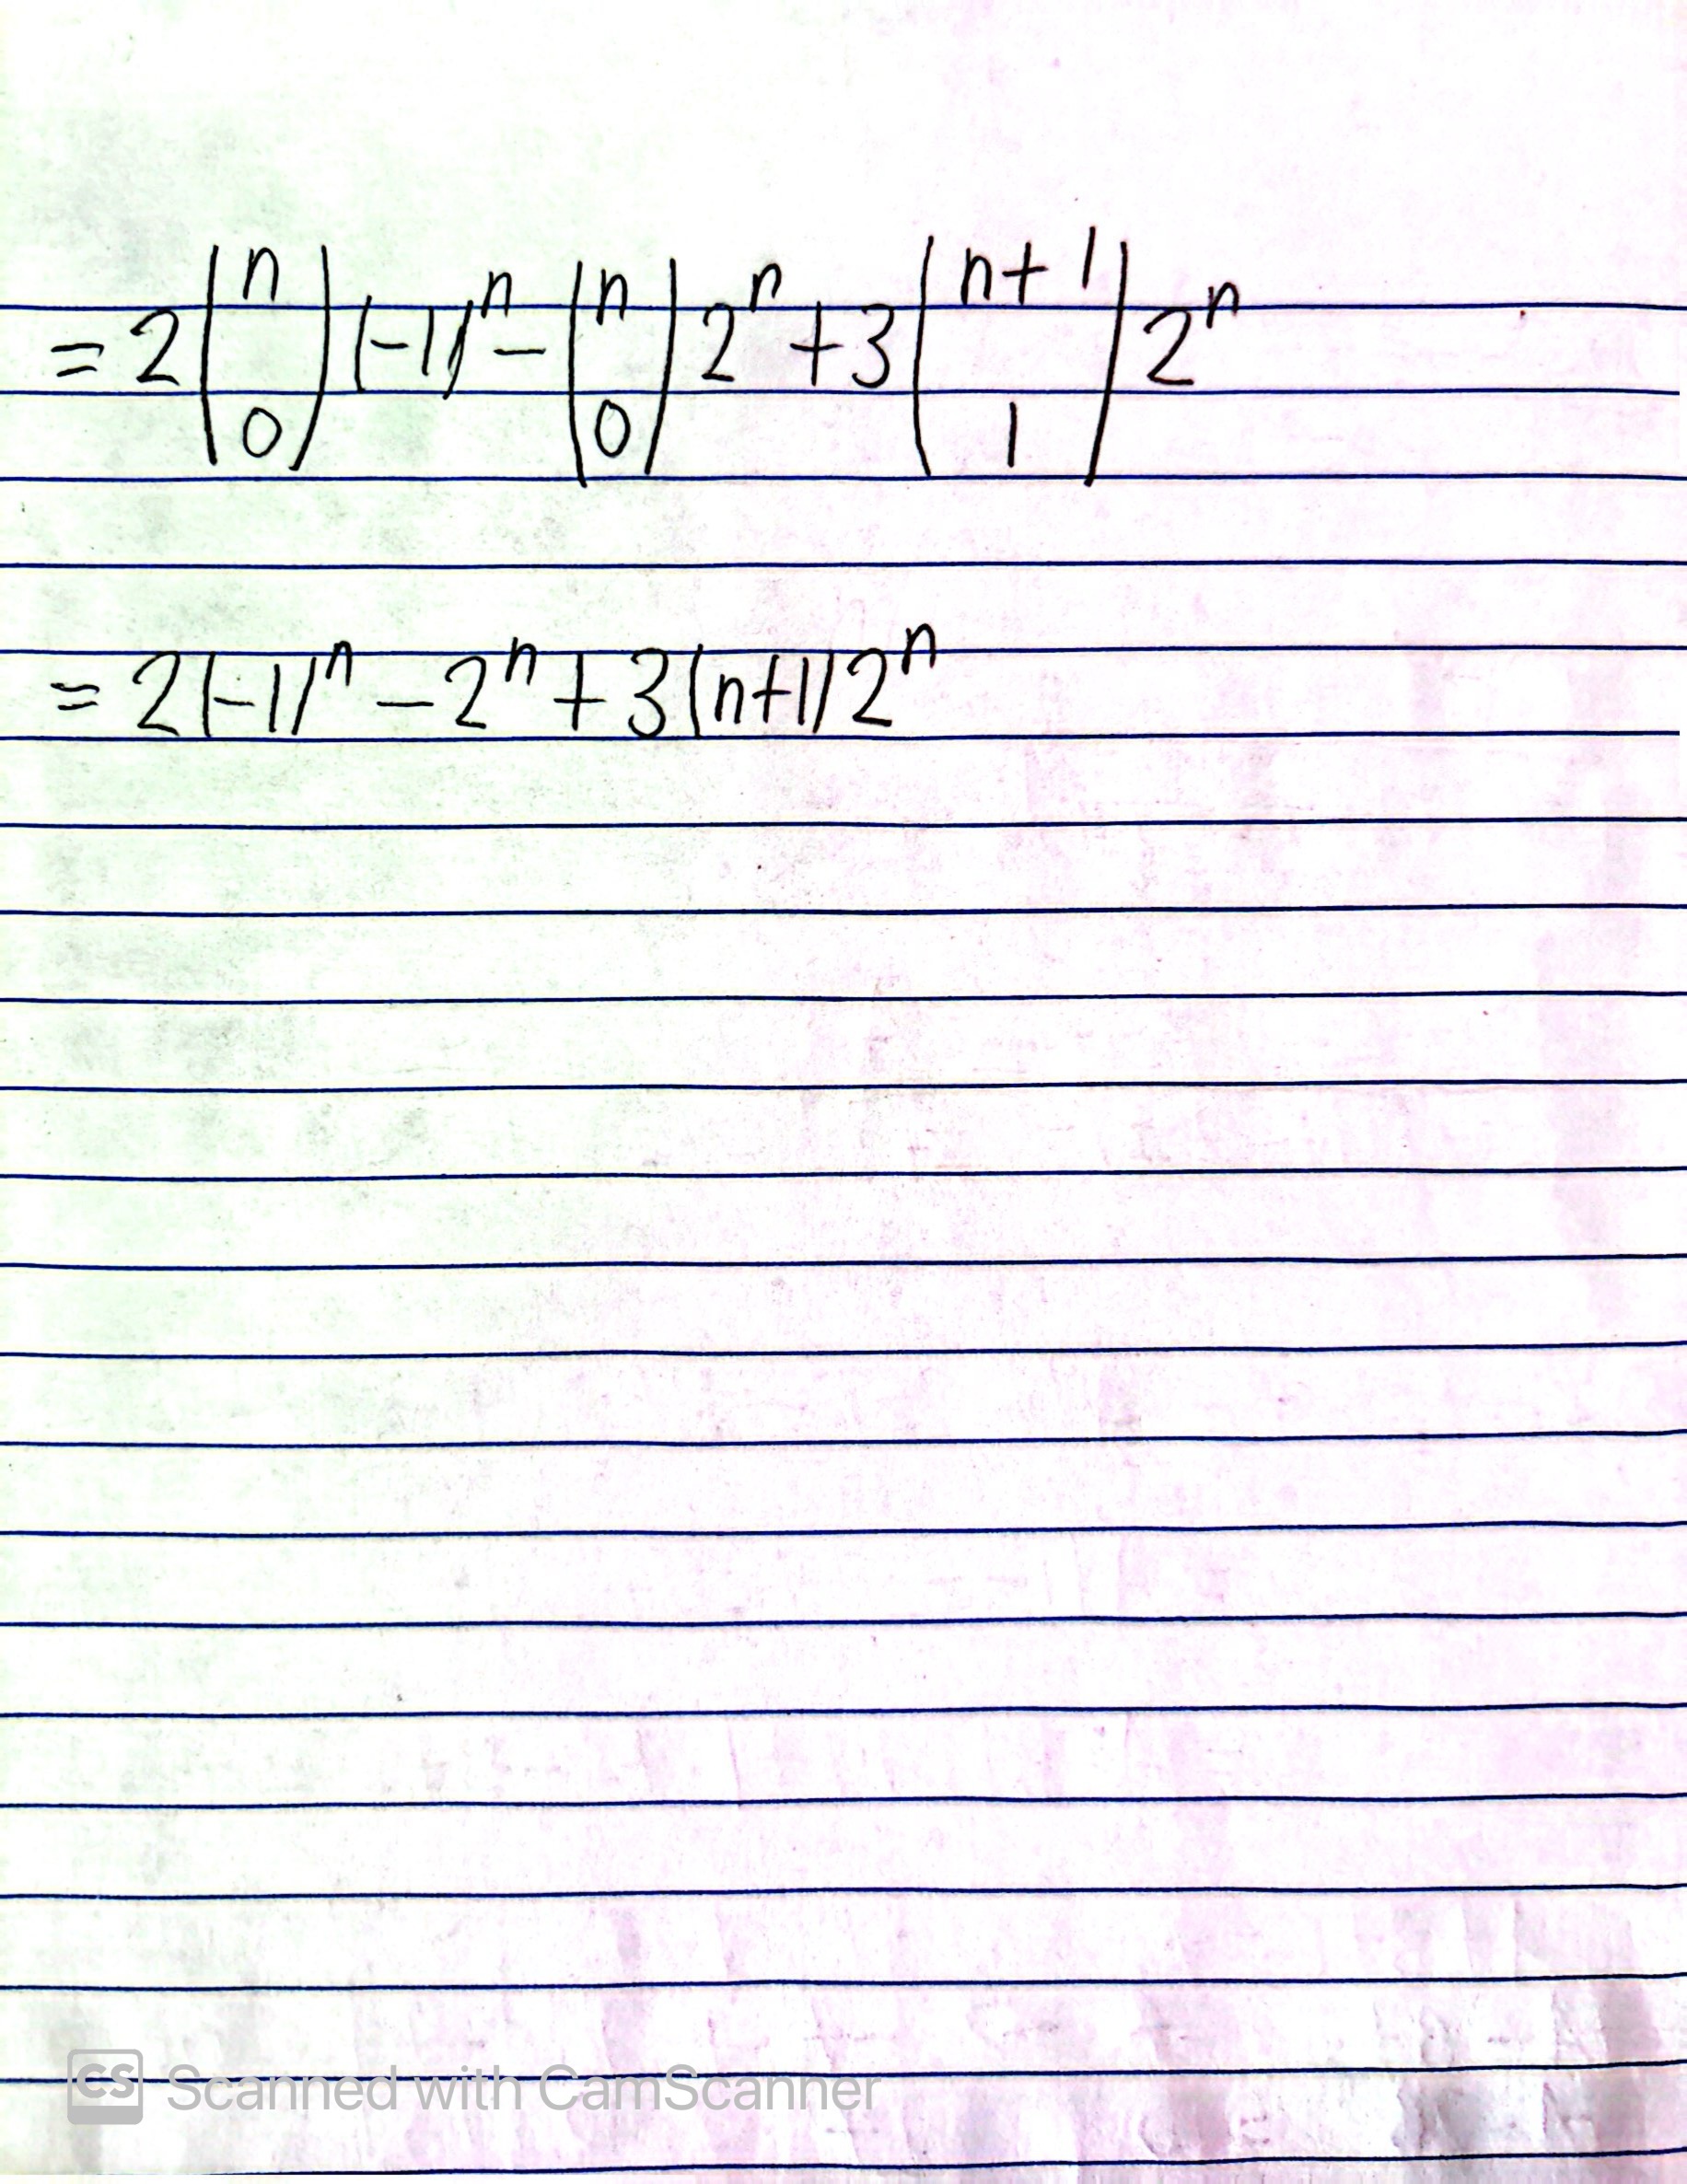 = 2 (n 0) (-1)^n - (n 0) 2^n + 3 (n+1 1) 2^n
= 2(-1)^n - 2^n + 3(n+1)2^n
CS Scanned with CamScanner